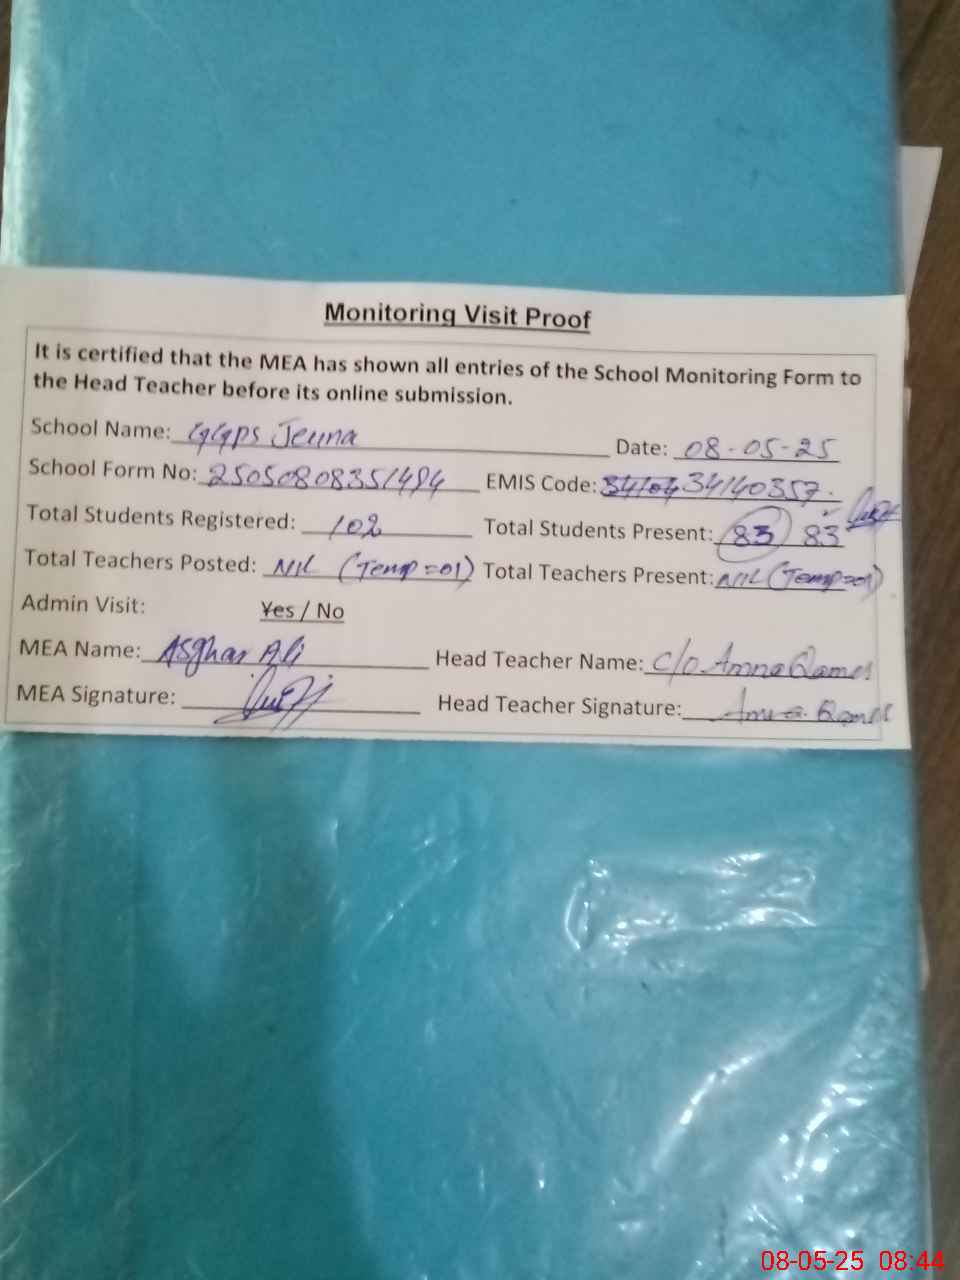 Monitoring Visit Proof
It is certified that the MEA has shown all entries of the School Monitoring Form to
the Head Teacher before its online submission.
School Name: GGPS Jeuna Date: 08-05-25
School Form No: 25050808351494 EMIS Code: 34140357
Total Students Registered: 102 Total Students Present: 83 83
Total Teachers Posted: NIL (Temp=01) Total Teachers Present: NIL (Temp=01)
Admin Visit: Yes / No
MEA Name: Asghar Ali Head Teacher Name: C/O Amna
MEA Signature: Head Teacher Signature: Amna
08-05-25 08:44